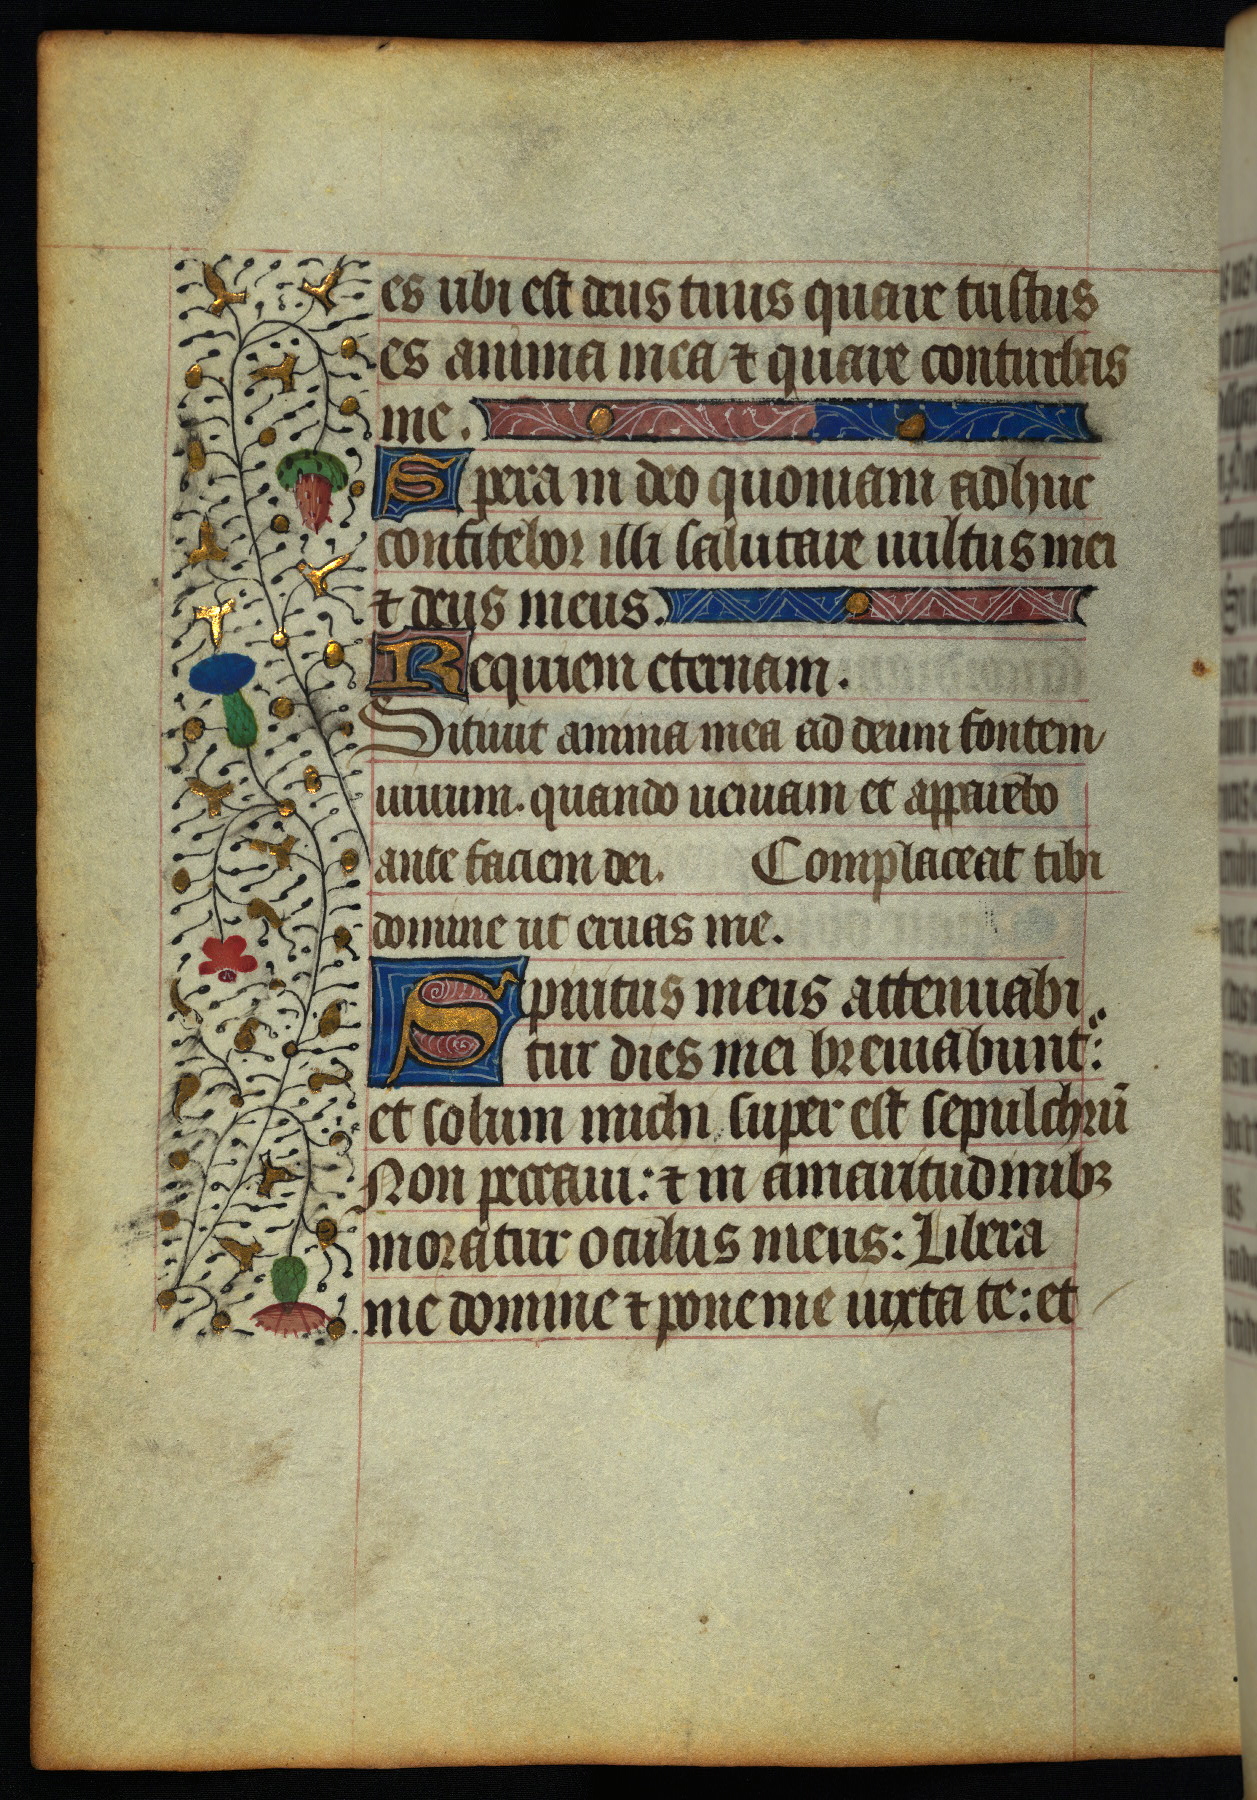 es ubi est deus tuus quare tristis
es anima mea ⁊ quare conturbas
me.
Spera in deo quoniam adhuc
confitebor illi salutare uultus mei
⁊ deus meus.
Requiem eternam.
Sitiuit anima mea ad deum fontem
uiuum. quando ueniam et apparebo
ante faciem dei. Complaceat tibi
domine ut eruas me.
Spiritus meus attenuabi
tur dies mei breuiabunt:
et solum michi super est sepulchrū
Non peccaui: ⁊ in amaritudinibꝫ
moratur oculus meus: Libera
me domine ⁊ pone me iuxta te: et